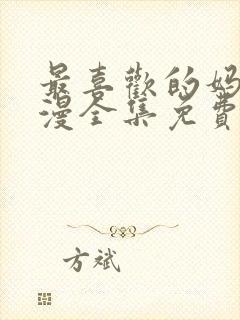 最喜歡的妈
漫全集免費
方斌